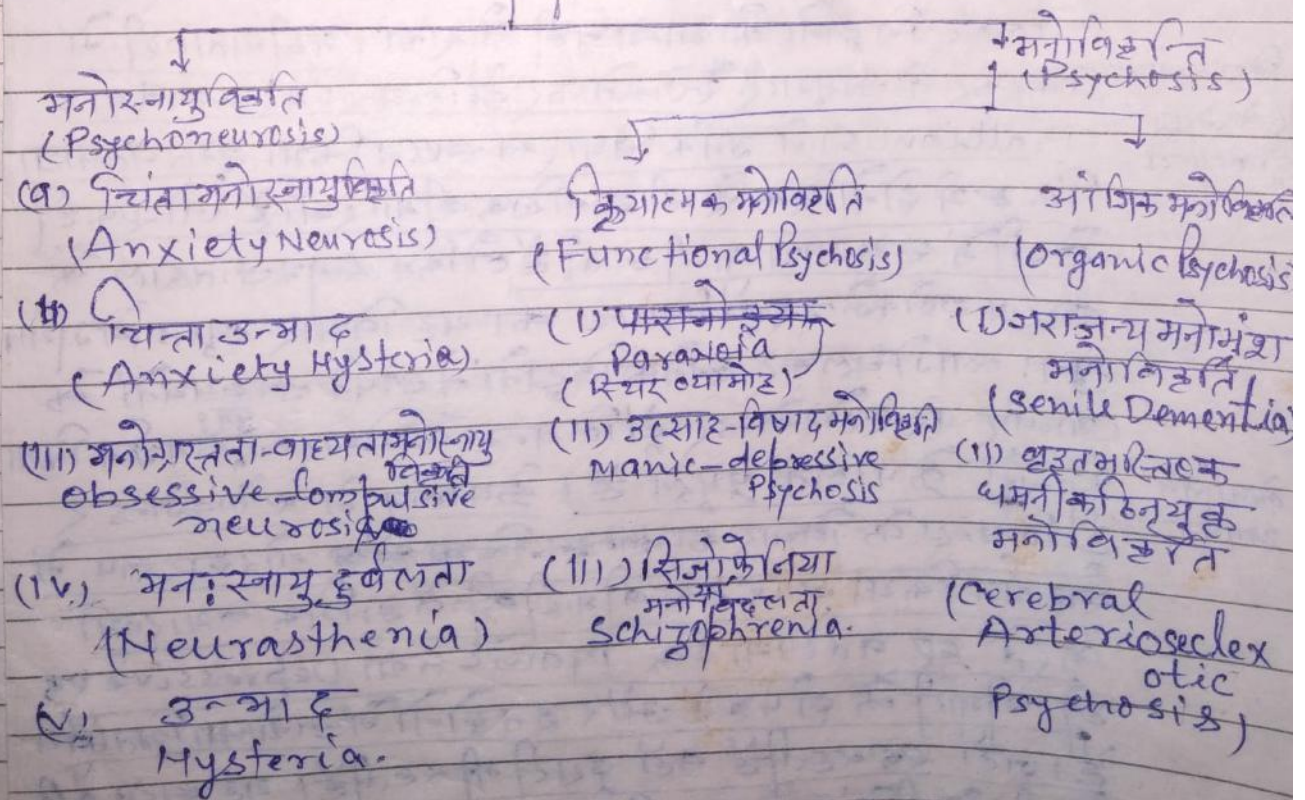 मनोस्नायुविकृति
(Psychoneurosis)
(a) चिंता मनोस्नायुविकृति
(Anxiety Neurosis)
चिन्ता उन्माद
(Anxiety Hysteria)
(III) मनोग्रस्तता-बाध्यता मनोस्नायु
विकृति
obsessive-Compulsive
neurosis
(IV.) मन: स्नायु दुर्बलता
(Neurasthenia)
(V) उन्माद
Hysteria.
मनोविकृति
(Psychosis)
क्रियात्मक मनोविकृति
(Functional Psychosis)
(I)
Paranoia
(स्थिर व्यामोह)
(II) उत्साह-विषाद मनोविकृति
Manic-depressive
Psychosis
(III) सिजोफ्रेनिया
या
Schizophrenia.
आंगिक मनोविकृति
(Organic Psychosis
(I) जराजन्य मनोभ्रंश
मनोविकृति
(Senile Dementia)
(II) वृहत मस्तिष्क
धमनीकठिनयुक्त
मनोविकृति
(Cerebral
Arterioseclex
otic
Psychosis)